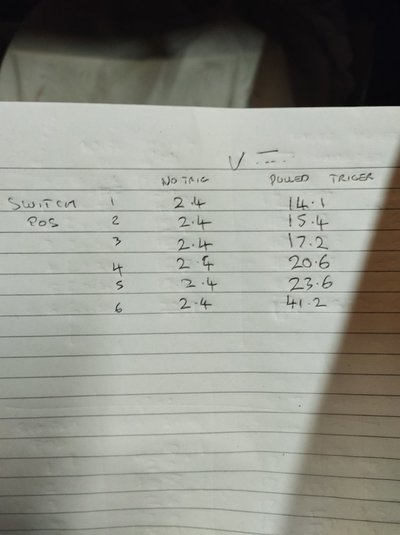 V
NO TRIG PULLED TRIGER
SWITCH 1 2.4 14.1
POS 2 2.4 15.4
3 2.4 17.2
4 2.4 20.6
5 2.4 23.6
6 2.4 41.2